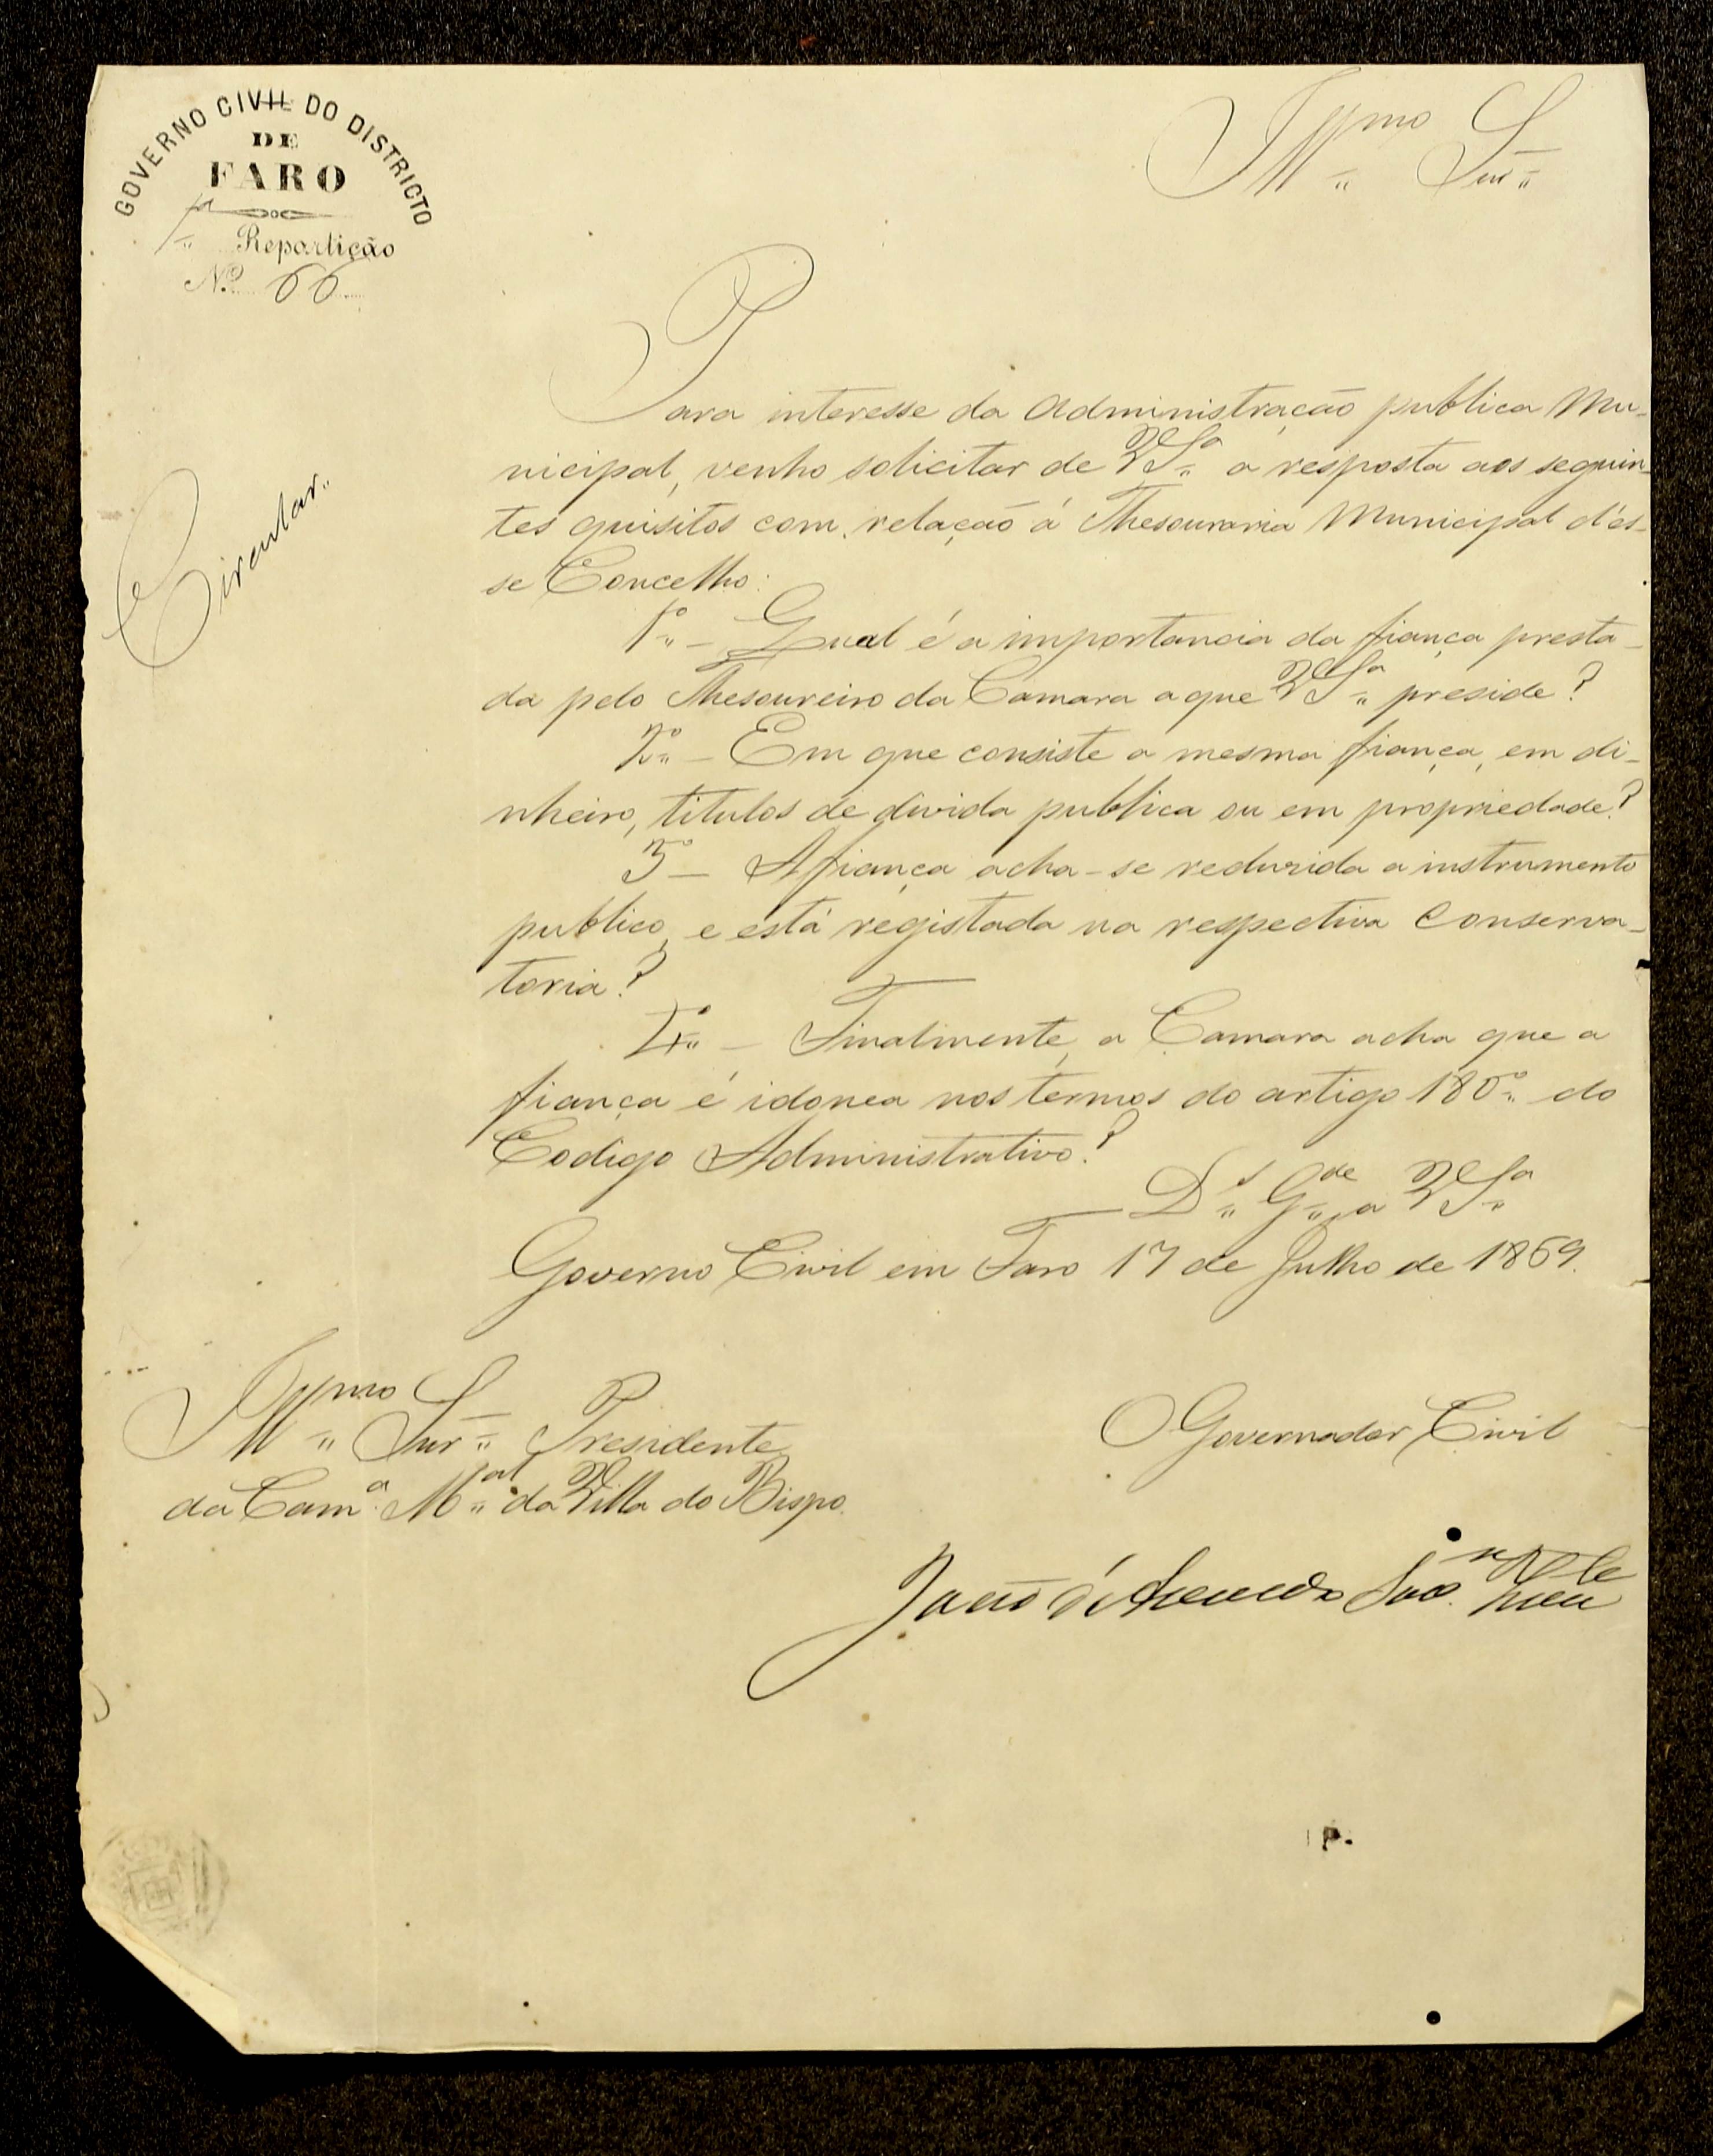 GOVERNO CIVIL DO DISTRICTO
DE
FARO
1ª Repartição
Nº 66
Illmo Snr
Circular
Para interesse da Administração publica Mu-
nicipal, venho solicitar de VSª a resposta aos seguin-
tes quisitos com relação á Thesouraria Municipal d'es-
se Concelho:
1º - Qual é a importancia da fiança presta-
da pelo Thesoureiro da Camara a que VSª preside?
2º - Em que consiste a mesma fiança, em di-
nheiro, titulos de divida publica ou em propriedade?
3º - A fiança acha-se reduzida a instrumento
publico, e está registada na respectiva Conserva-
toria?
4º - Finalmente, a Camara acha que a
fiança é idonea nos termos do artigo 180º do
Codigo Administrativo?
Ds Gde a VSª
Governo Civil em Faro 17 de Julho de 1869.
Illmo Snr Presidente
da Camª Mal da Villa do Bispo.
O Governador Civil
João d'